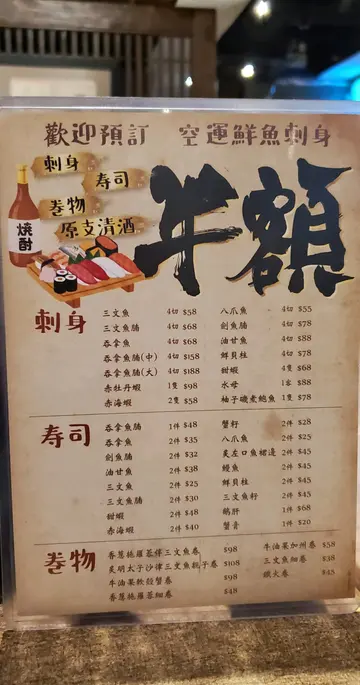 歡迎預訂 空運鮮魚刺身
刺身
寿司
卷物
原支清酒
焼酎
牛額
刺身
三文魚 4切 $58
三文魚腩 4切 $68
吞拿魚 4切 $68
吞拿魚腩(中) 4切 $158
吞拿魚腩(大) 4切 $188
赤牡丹蝦 1隻 $98
赤海蝦 2隻 $58
八爪魚 4切 $55
劍魚腩 4切 $78
油甘魚 4切 $88
鮮貝柱 4切 $78
甜蝦 4隻 $68
水母 1客 $88
柚子磯煮鮑魚 1隻 $78
寿司
吞拿魚腩 1件 $48
吞拿魚 2件 $35
劍魚腩 2件 $32
油甘魚 2件 $38
三文魚 2件 $25
三文魚腩 2件 $30
甜蝦 2件 $48
赤海蝦 2件 $40
蟹籽 2件 $28
八爪魚 2件 $25
炙左口魚裙邊 2件 $45
鰻魚 2件 $45
鮮貝柱 2件 $45
三文魚籽 2件 $45
鵝肝 1件 $68
蟹膏 1件 $20
卷物
香蔥拖羅蓉伴三文魚卷 $98
炙明太子沙律三文魚腩手卷 $108
牛油果軟殼蟹卷 $98
香蔥拖羅蓉細卷 $48
牛油果加州卷 $58
三文魚細卷 $38
鐵火卷 $45